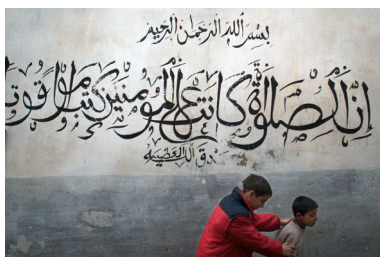 بسم الله الرحمن الرحيم
إن الصلوة كانت على المؤمنين كتبا موقوتا
صدق الله العظيم